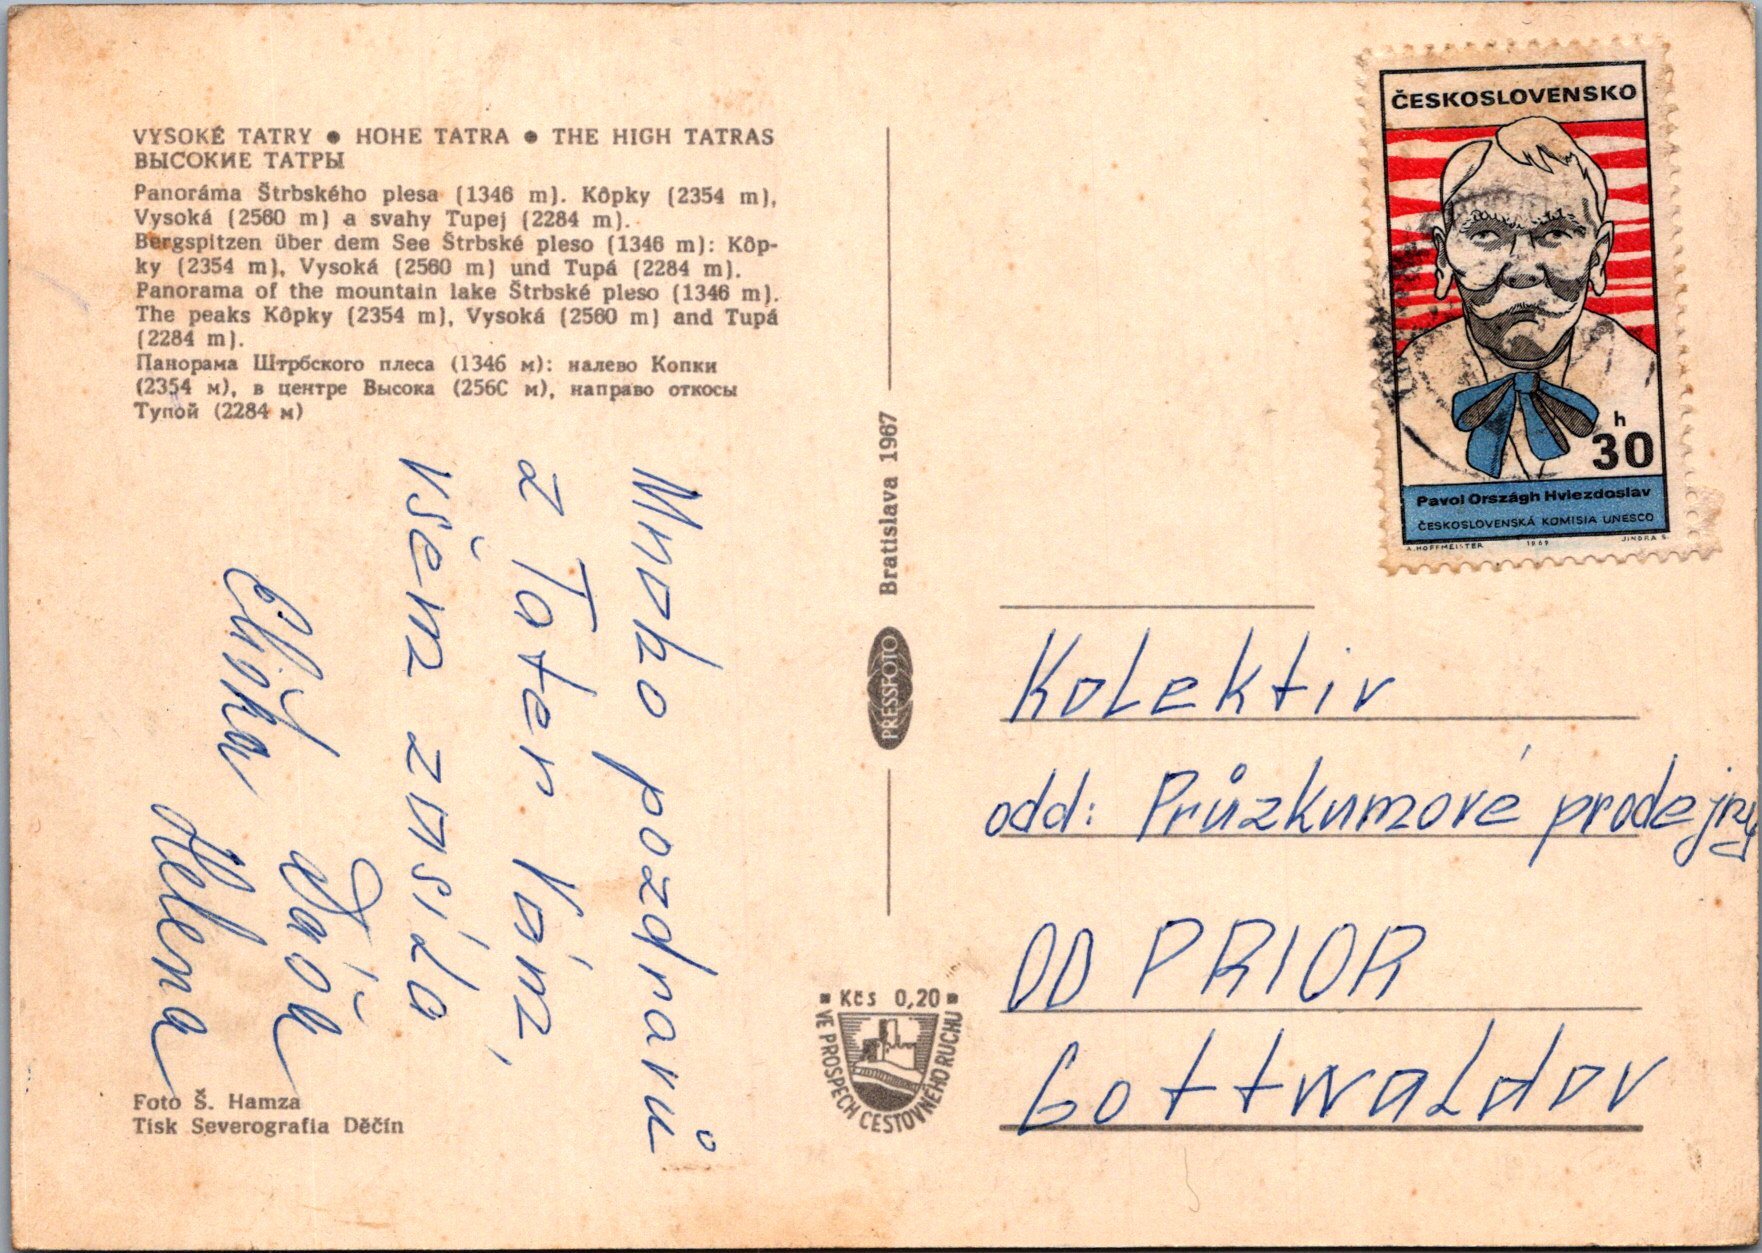 VYSOKÉ TATRY ● HOHE TATRA ● THE HIGH TATRAS
ВЫСОКИЕ ТАТРЫ
Panoráma Štrbského plesa (1346 m). Kôpky (2354 m),
Vysoká (2560 m) a svahy Tupej (2284 m).
Bergspitzen über dem See Štrbské pleso (1346 m): Kôp-
ky (2354 m), Vysoká (2560 m) und Tupá (2284 m).
Panorama of the mountain lake Štrbské pleso (1346 m).
The peaks Kôpky (2354 m), Vysoká (2560 m) and Tupá
(2284 m).
Панорама Штрбского плеса (1346 м): налево Копки
(2354 м), в центре Высока (256С м), направо откосы
Тупой (2284 м)
Mnoho pozdravů
z Tater Vám,
všem zasíla
Eliška
Helena
Foto Š. Hamza
Tisk Severografia Děčín
Bratislava 1967
PRESSFOTO
Kčs 0,20
VE PROSPĚCH CESTOVNÉHO RUCHU
ČESKOSLOVENSKO
h
30
Pavol Országh Hviezdoslav
ČESKOSLOVENSKÁ KOMISIA UNESCO
A. HOFFMEISTER 1969 JINDRA S.
Kolektiv
odd: Průzkumové prodejny
OD PRIOR
Gottwaldov